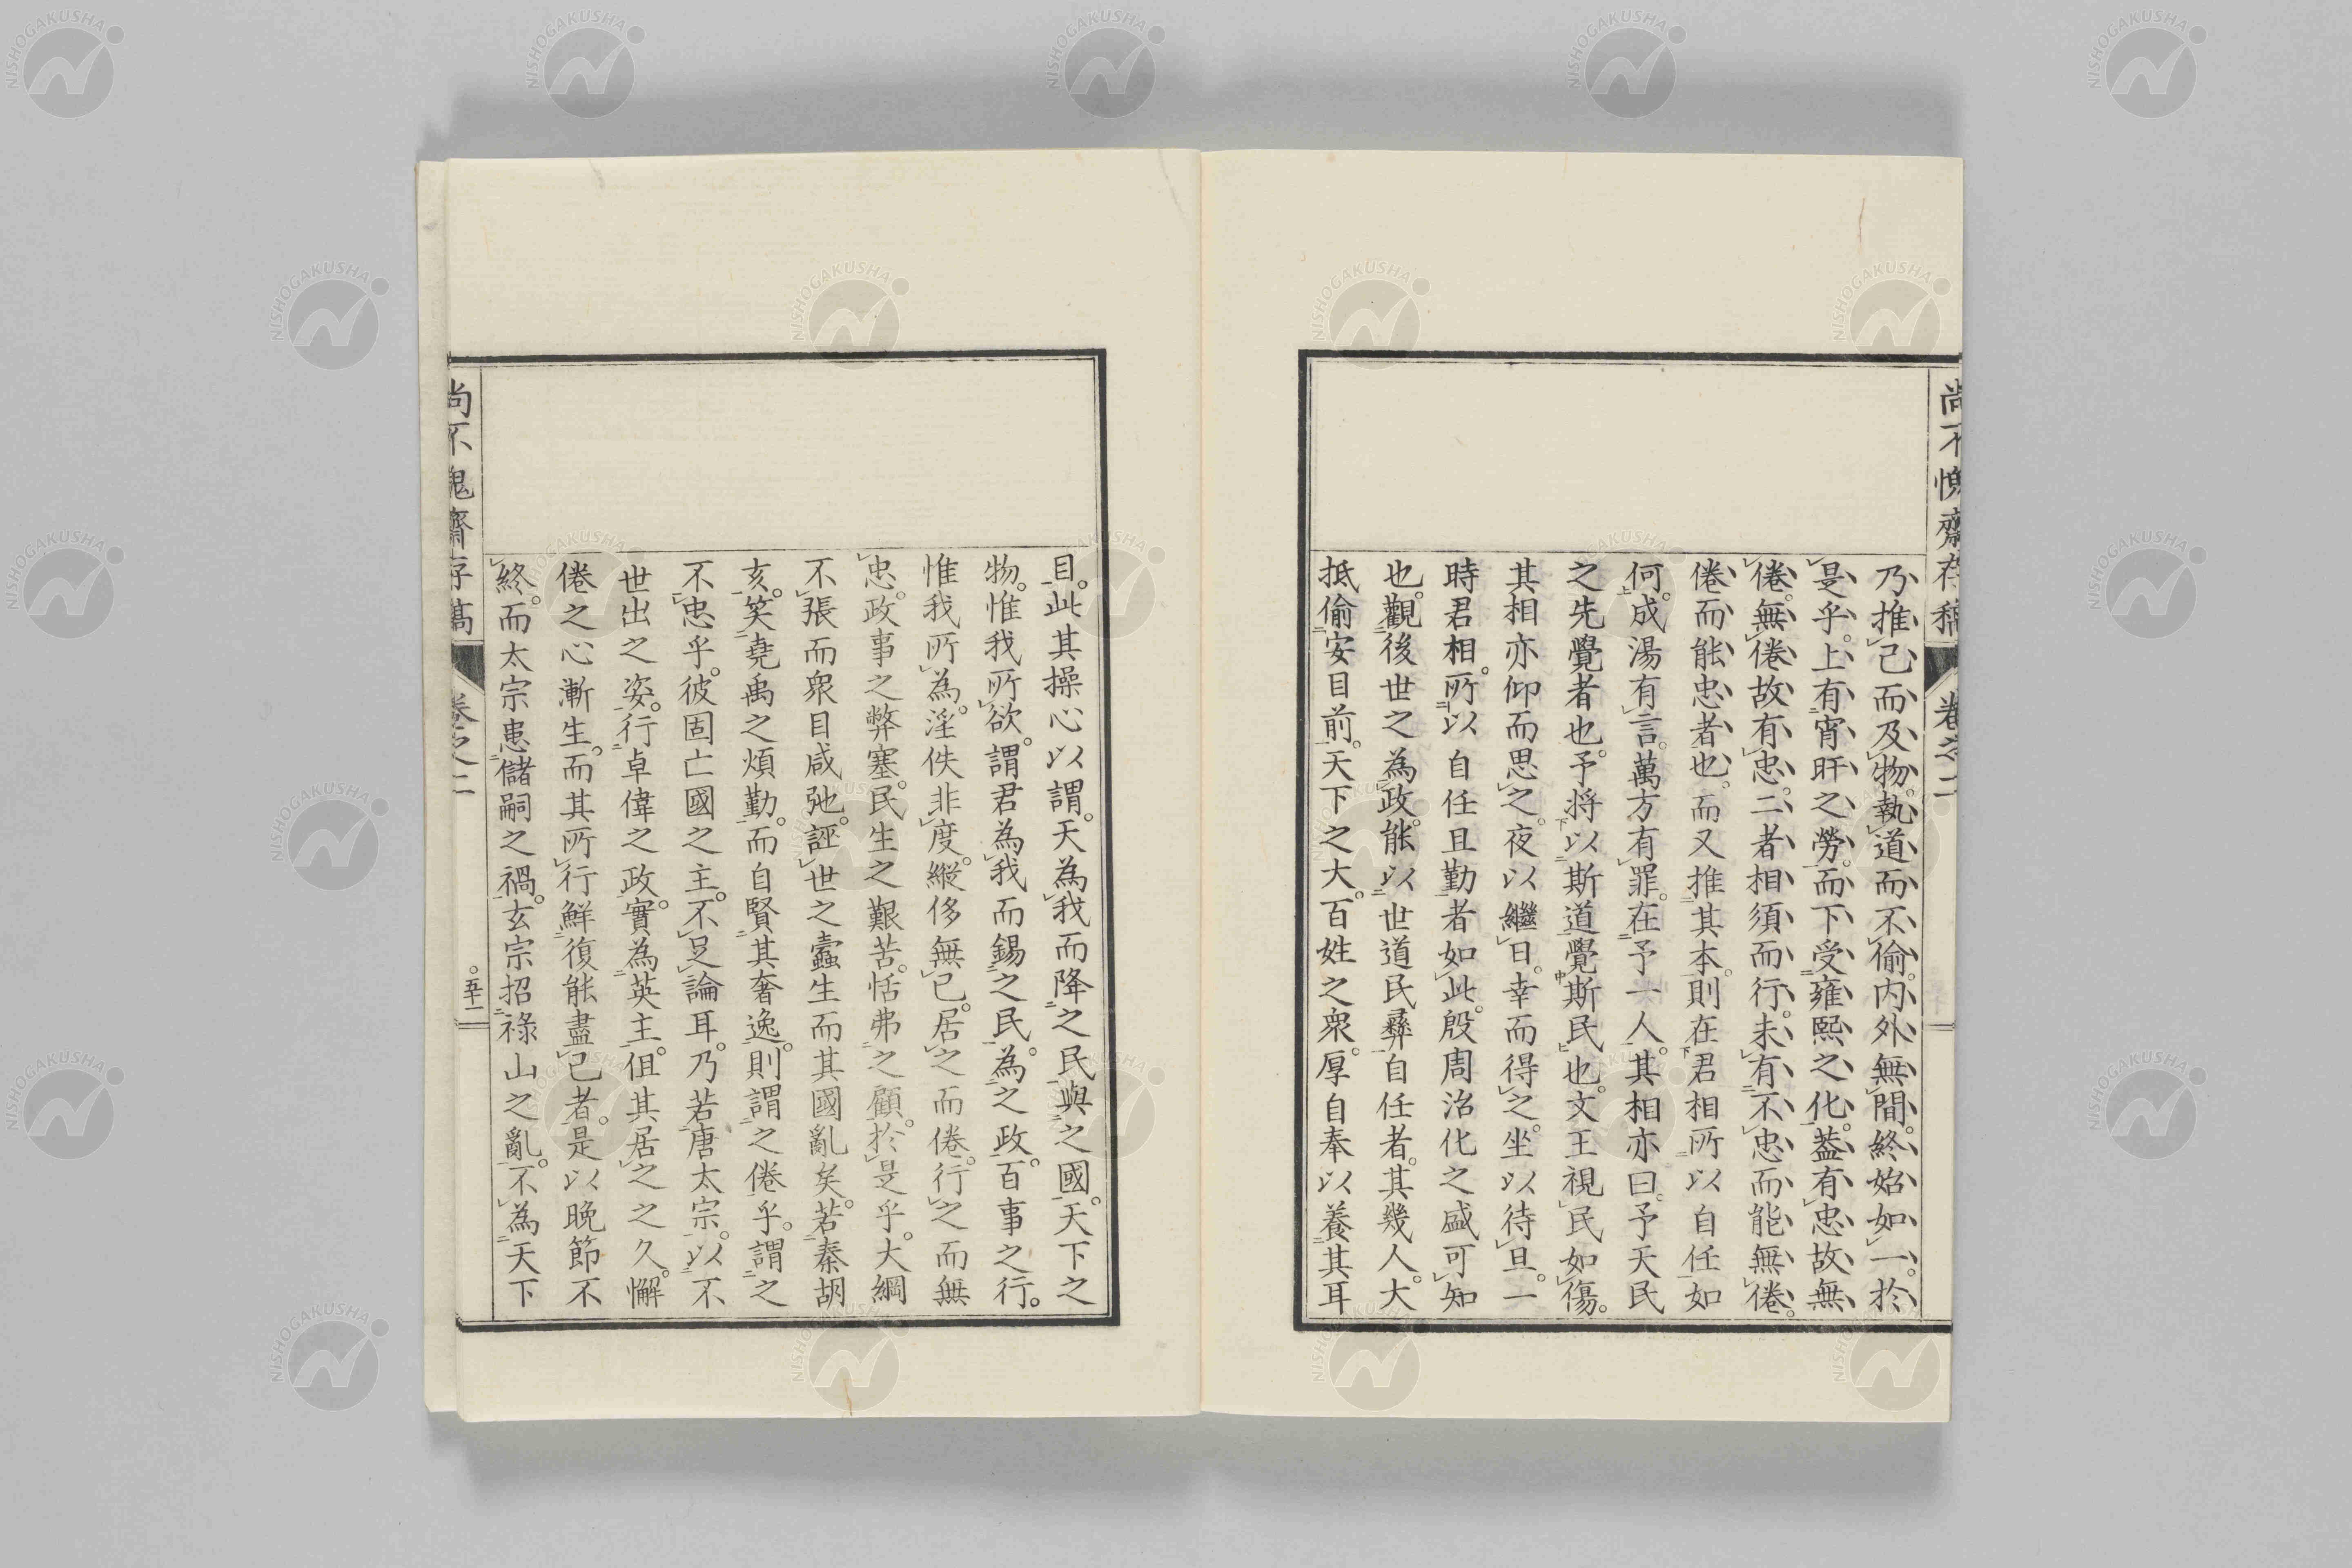 尚不愧齋存稿 卷之二
乃推己而及物。執道而不偷。內外無間。終始如一。於
是乎。上有宵旰之勞。而下受雍熙之化。蓋有忠故無
倦。無倦故有忠。二者相須而行。未有不忠而能無倦。
倦而能忠者也。而又推其本。則在君相所以自任如
何。成湯有言。萬方有罪。在予一人。其相亦曰。予天民
之先覺者也。予將以斯道覺斯民也。文王視民如傷。
其相亦仰而思之。夜以繼日。幸而得之。坐以待旦。一
時君相。所以自任且勤者如此。殷周治化之盛可知
也。觀後世之為政。能以世道民彝自任者。其幾人。大
抵偷安目前。天下之大。百姓之眾。厚自奉以養其耳
目。此其操心以謂。天為我而降之民。與之國。天下之
物。惟我所欲。謂君為我而錫之民。為之政。百事之行。
惟我所為。淫佚非度。縱侈無已。居之而倦。行之而無
忠。政事之弊塞。民生之艱苦。恬弗之顧。於是乎。大綱
不張而眾目咸弛。誣世之蠹生而其國亂矣。若秦胡
亥。笑堯禹之煩勤。而自賢其奢逸。則謂之倦乎。謂之
不忠乎。彼固亡國之主。不足論耳。乃若唐太宗。以不
世出之姿。行卓偉之政。實為英主。但其居之之久。懈
倦之心漸生。而其所行鮮復能盡己者。是以晚節不
終。而太宗患儲嗣之禍。玄宗招祿山之亂。不為天下
尚不愧齋存稿 卷之二 五十二
NISHOGAKUSHA